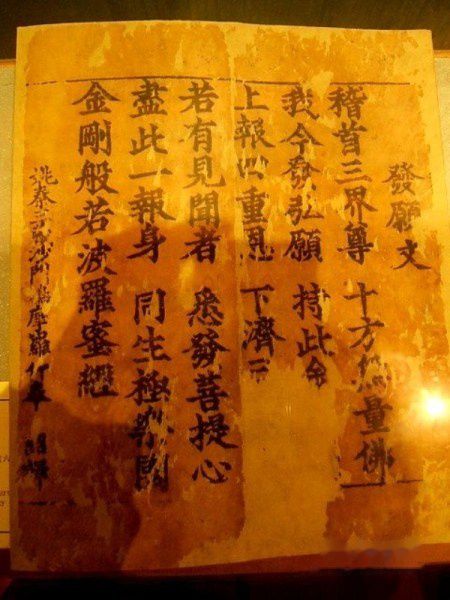 發願文
稽首三界尊 十方無量佛
我今發弘願 持此金
上報四重恩 下濟三
若有見聞者 悉發菩提心
盡此一報身 同生極樂國
金剛般若波羅蜜經
姚秦三藏沙門鳩摩羅什奉 詔譯